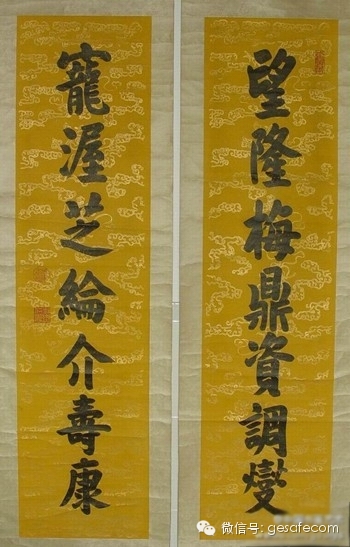 望隆梅鼎資調燮
寵渥芝綸介壽康
微信号: gesafecom